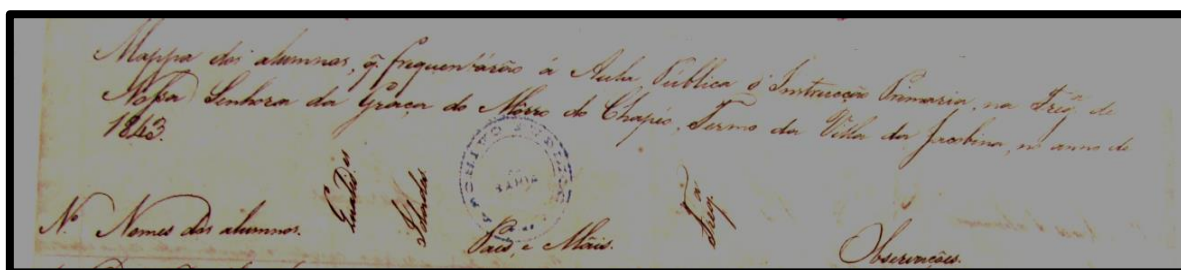 Mappa dos alumnos, q. frequentárão á Aula Pública d'Instrucção Primaria, na Freg.ª de
Nossa Senhora da Graça do Môrro do Chapéo, Termo da Villa da Jacobina, no anno de
1843.
ARCHIVO PUBLICO
BAHIA
N.º Nomes dos alumnos. Qualid.es Idades Pais, e Mais. Freg.as Observações.